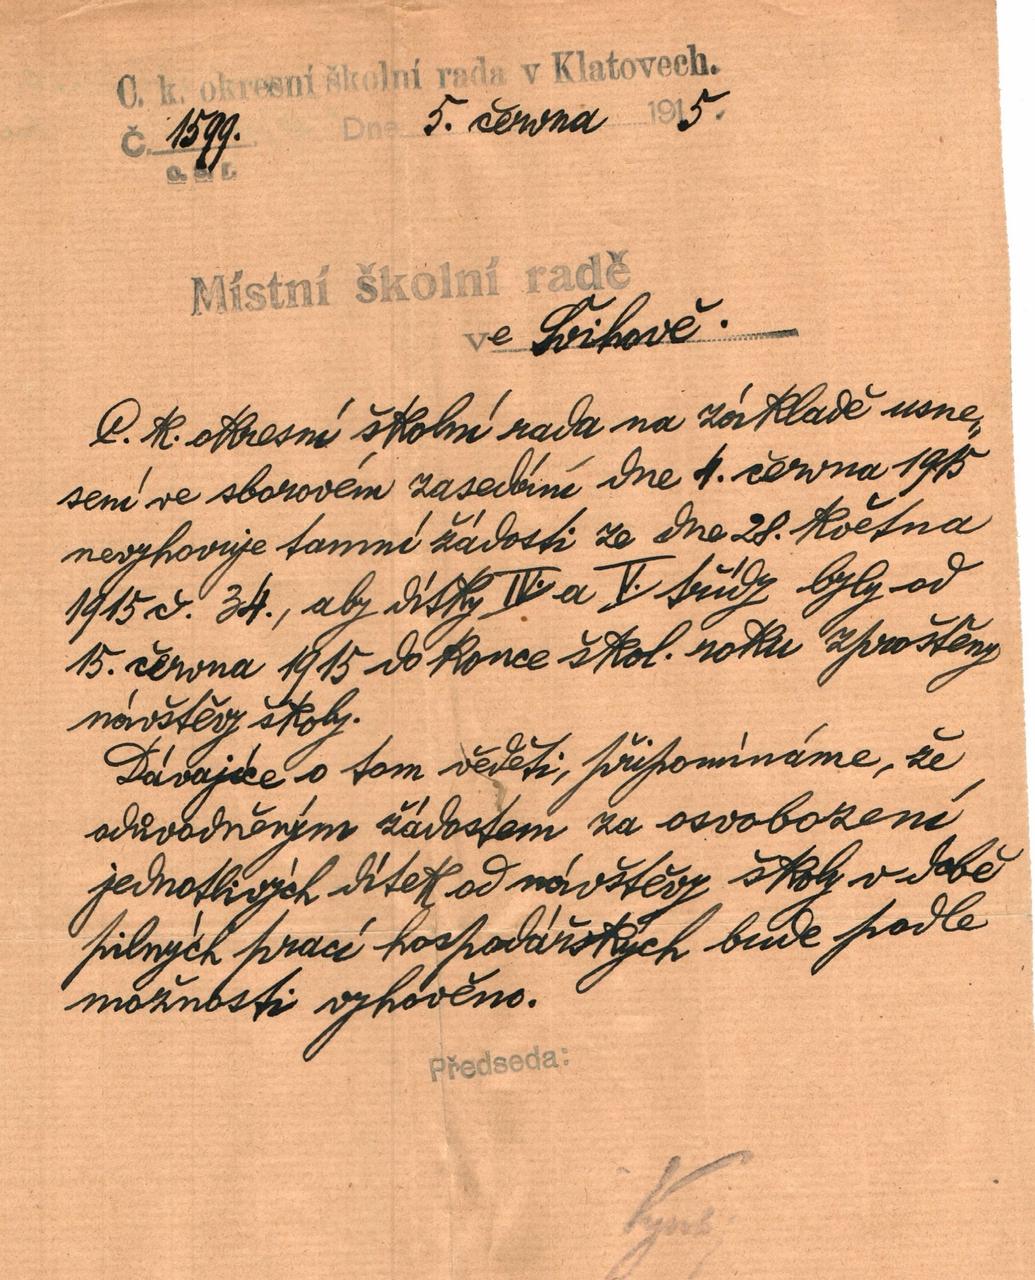 C. k. okresní školní rada v Klatovech.
Č. 1599. Dne 5. června 1915.
o. š. r.
Místní školní radě
ve Švihově.
C. k. okresní školní rada na základě usne„
sení ve sborovém zasedání dne 4. června 1915
nevyhovuje tamní žádosti ze dne 28. května
1915 č. 34., aby dítky IV. a V. třídy byly od
15. června 1915 do konce škol. roku zproštěny
návštěvy školy.
Dávajíce o tom věděti, připomínáme, že
odůvodněným žádostem za osvobození
jednotlivých dítek od návštěvy školy v době
pilných prací hospodářských bude podle
možnosti vyhověno.
Předseda: